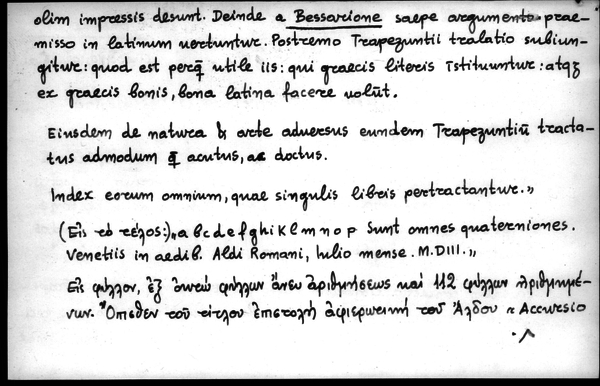 olim impressis desunt. Deinde a Bessarione saepe argumento prae-
misso in latinum uertuntur. Postremo Trapezuntii tralatio subiun-
gitur: quod est perq̄ utile iis: qui graecis literis īstituuntur: atqꝫ
ex graecis bonis, bona latina facere uolūt.
Eiusdem de natura & arte aduersus eundem Trapezuntiū tracta-
tus admodum q̄ acutus, ac doctus.
Index eorum omnium, quae singulis libris pertractantur.»
(Εἰς τὸ τέλος:) „a b c d e f g h i k l m n o p Sunt omnes quaterniones.
Venetiis in aedib. Aldi Romani, Iulio mense. M.DIII.„
Εἰς φύλλον, ἐξ ὀκτὼ φύλλων ἄνευ ἀριθμήσεως καὶ 112 φύλλων ἠριθμημέ-
νων. Ὄπισθεν τοῦ τίτλου ἐπιστολὴ ἀφιερωτικὴ τοῦ Ἄλδου « Accursio